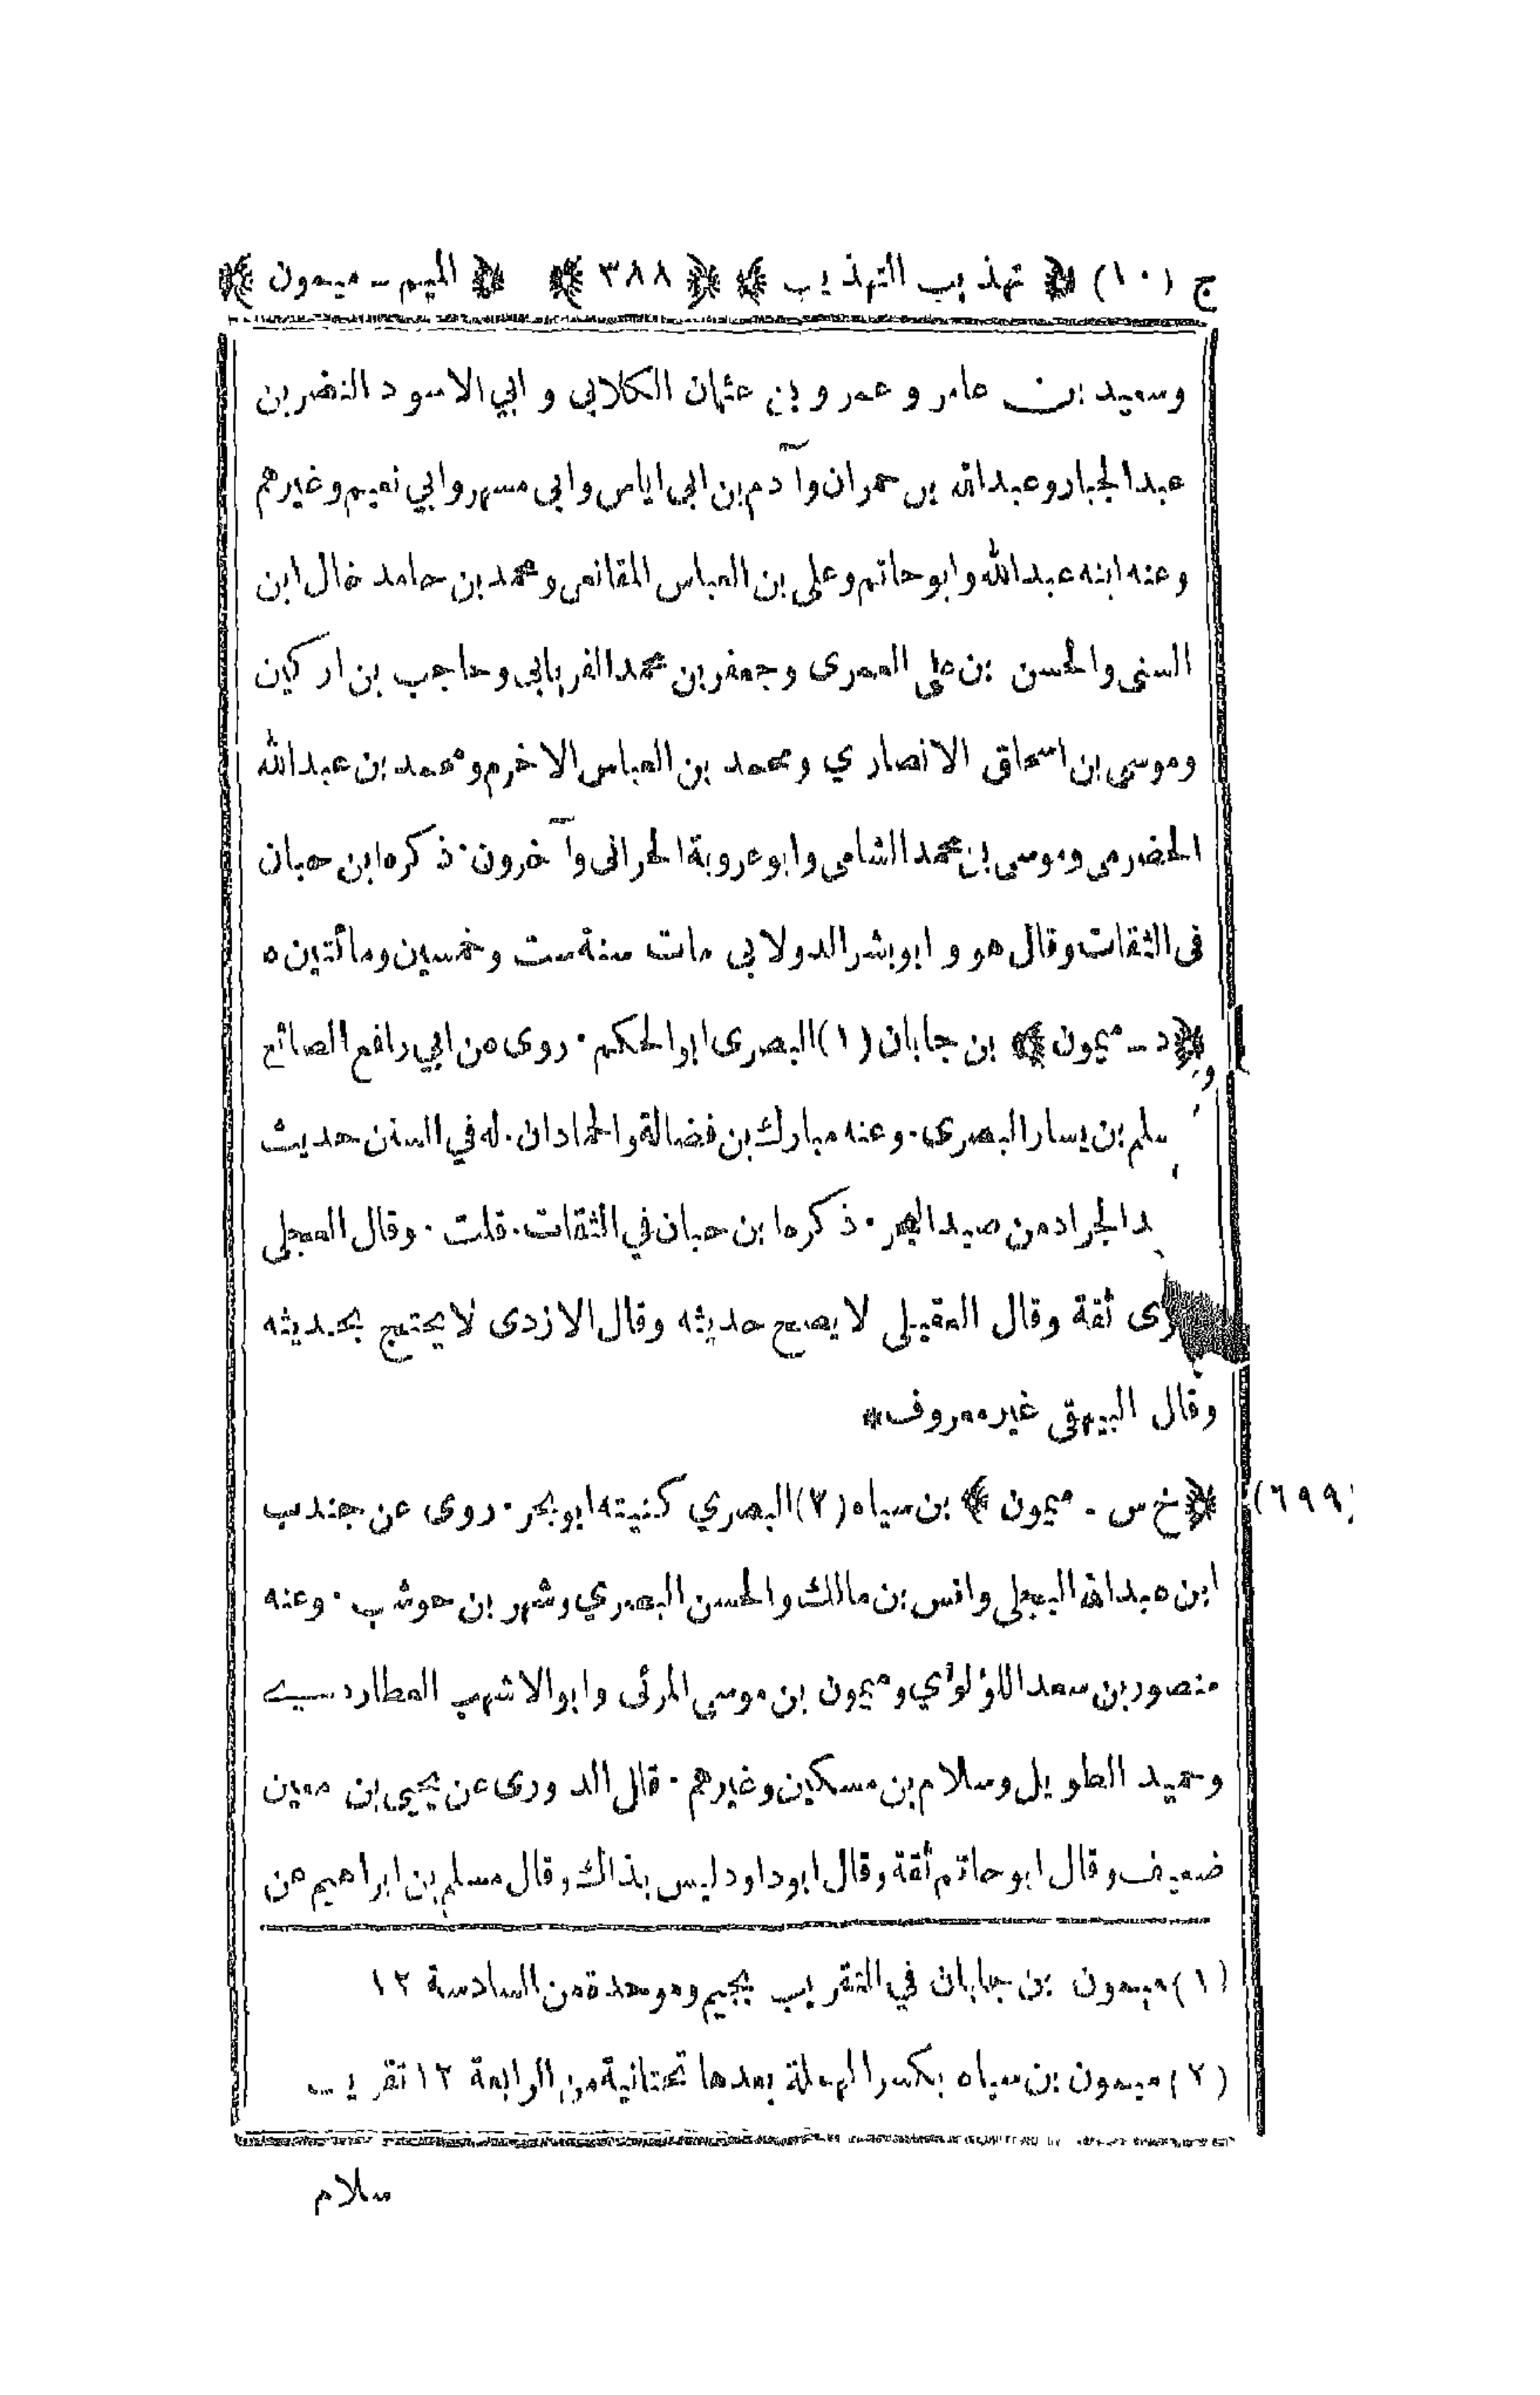 ج (١٠) ﴿ تهذيب التهذيب ﴾ ﴿ ٣٨٨ ﴾ ﴿ الميم - ميمون ﴾
وسعيد بن عامر وعمرو بن عثمان الكلابي وابي الاسود النضر بن
عبد الجبار وعبد الله بن حمران وآدم بن ابي اياس وابى مسهر وابي نعيم وغيرهم
وعنه ابنه عبد الله وابو حاتم وعلى بن العباس المقانعى ومحمد بن حامد خال ابن
السنى والحسن بن على المعمرى وجعفر بن محمد الفريابي وحاجب بن اركين
وموسى بن اسحاق الانصاري ومحمد بن العباس الاخرم ومحمد بن عبد الله
الحضرمى وموسى بن محمد الشامى وابو عروبة الحرانى وآخرون. ذكره ابن حبان
فى الثقات وقال هو و ابو بشر الدولابي مات سنة ست وخمسين ومائتين ه
﴿ د - ميمون ﴾ بن جابان (١) البصرى ابو الحكم. روى عن ابي رافع الصائغ
سلم بن يسار البصرى. وعنه مبارك بن فضالة والحمادان. له في السنن حديث
د الجراد من صيد البحر. ذكره ابن حبان في الثقات. قلت. وقال العجلى
رى ثقة وقال العقيلى لا يصح حديثه وقال الازدى لا يحتج بحديثه
وقال البيهقى غير معروف*
﴿ خ س - ميمون ﴾ بن سياه (٢) البصري كنيته ابو بحر. روى عن جندب
(٦٩٩
ابن عبد الله البجلى وانس بن مالك والحسن البصري وشهر بن حوشب. وعنه
منصور بن سعد اللؤلؤي وميمون بن موسى المرئى وابو الاشهب العطاردي
وحميد الطويل وسلام بن مسكين وغيرهم. قال الدورى عن يحيى بن معين
ضعيف وقال ابو حاتم ثقة وقال ابو داود ليس بذاك وقال مسلم بن ابراهيم عن
(١) ميمون بن جابان في التقريب بجيم وموحدة من السادسة ١٢
(٢) ميمون بن سياه بكسر المهملة بعدها تحتانية من الرابعة ١٢ تقريب
سلام